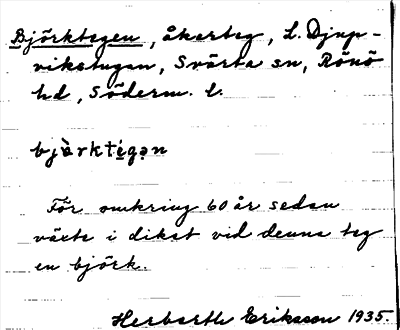 Björktegen, åkerteg, t. Djup-
vikstugan, Svärta sn, Rönö
hd, Söderm. l.
bjö̀rktégan
För omkring 60 år sedan
växte i diket vid denna teg
en björk.
Herberth Eriksson 1935.